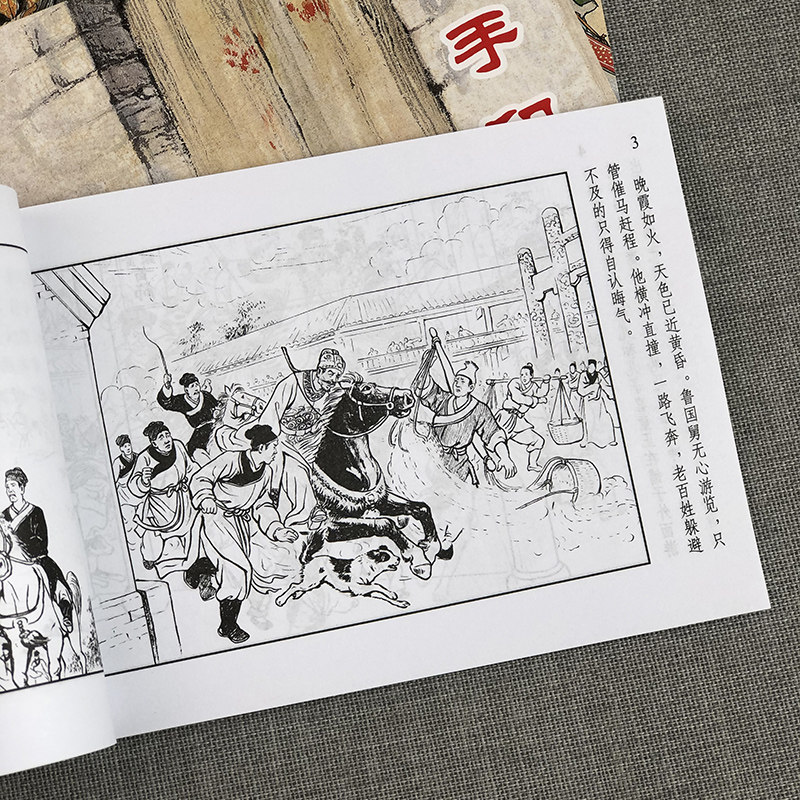 手
3
晚霞如火，天色已近黄昏。鲁国舅无心游览，只
管催马赶程。他横冲直撞，一路飞奔，老百姓躲避
不及的只得自认晦气。